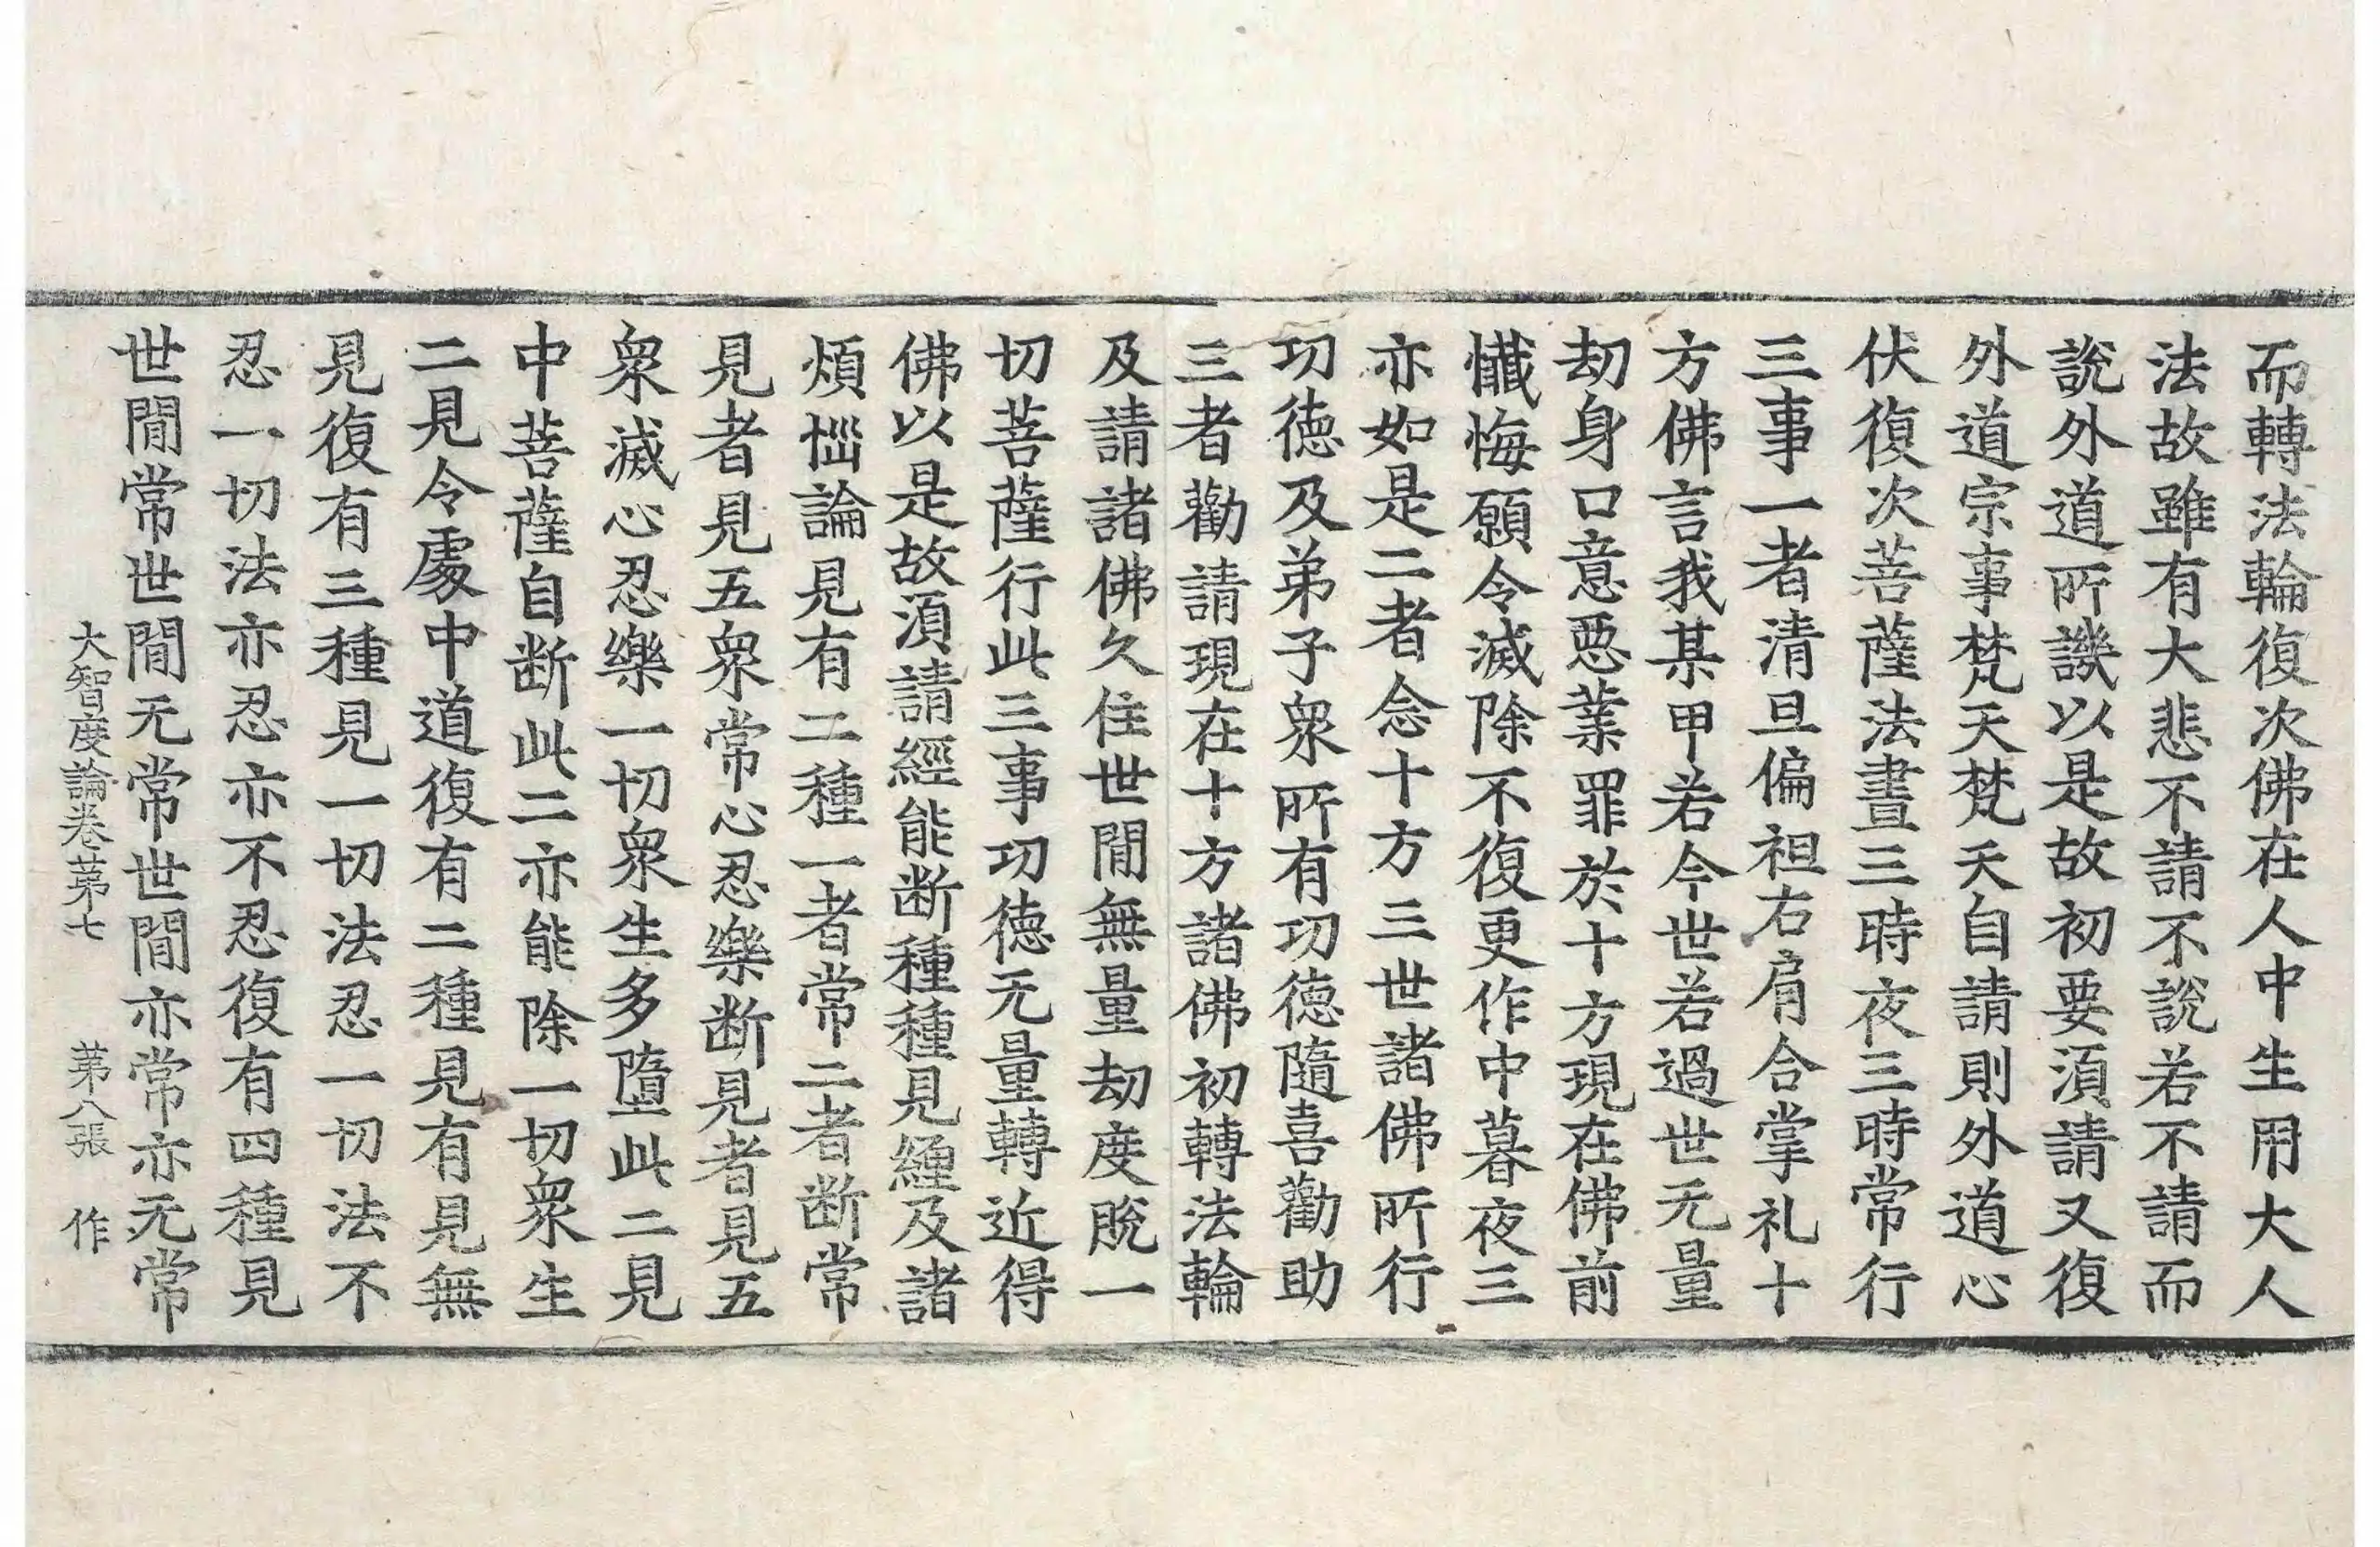 而轉法輪復次佛在人中生用大人
法故雖有大悲不請不說若不請而
說外道所譏以是故初要湏請又復
外道宗事梵天梵天自請則外道心
伏復次菩薩法晝三時夜三時常行
三事一者清旦偏袒右肩合掌礼十
方佛言我某甲若今世若過世无量
劫身口意惡業罪於十方現在佛前
懺悔願令滅除不復更作中暮夜三
亦如是二者念十方三世諸佛所行
功德及弟子衆所有功德隨喜勸助
三者勸請現在十方諸佛初轉法輪
及請諸佛久住世閒無量劫度脫一
切菩薩行此三事功德无量轉近得
佛以是故湏請經能断種種見纏及諸
煩惱論見有二種一者常二者断常
見者見五衆常心忍樂断見者見五
衆滅心忍樂一切衆生多墮此二見
中菩薩自断此二亦能除一切衆生
二見令處中道復有二種見有見無
見復有三種見一切法忍一切法不
忍一切法亦忍亦不忍復有四種見
世閒常世閒无常世閒亦常亦无常
大智度論卷第七 第八張 作